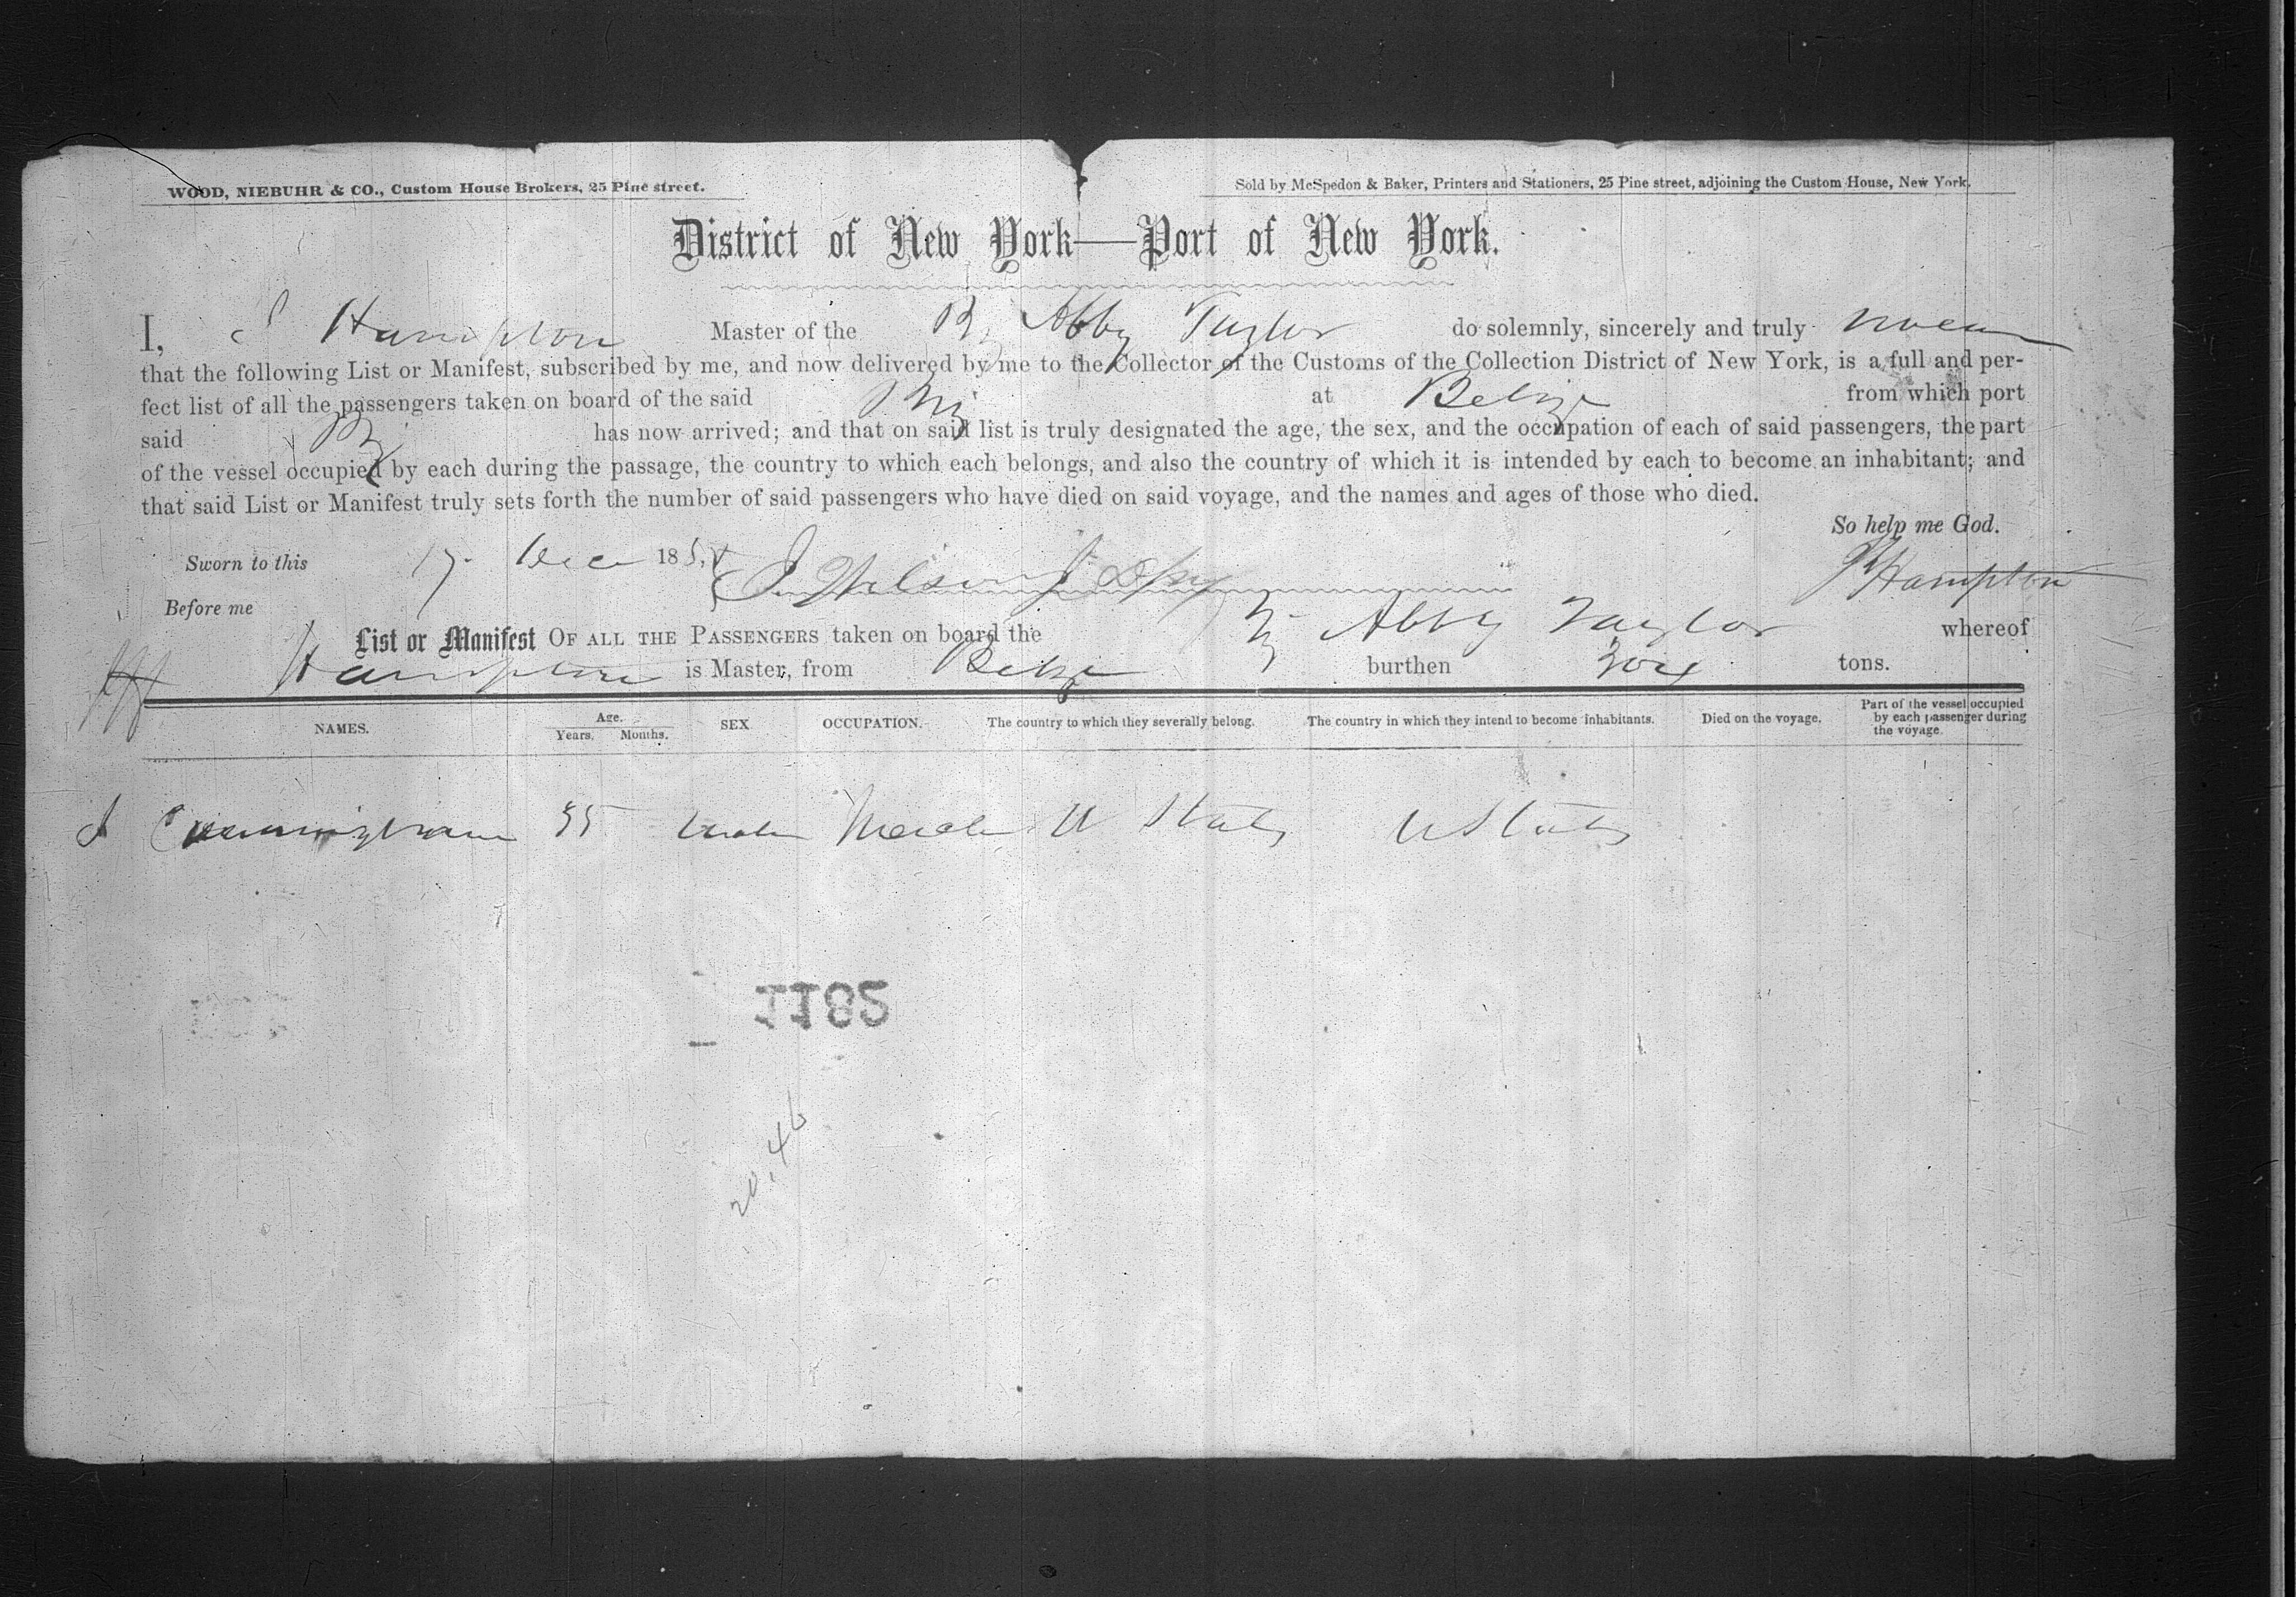 WOOD, NIEBUHR & CO., Custom House Brokers, 25 Pine street.
Sold by McSpedon & Baker, Printers and Stationers, 25 Pine street, adjoining the Custom House, New York.
District of New York—Port of New York.
I, J Hampton Master of the Bg Abby Taylor do solemnly, sincerely and truly swear
that the following List or Manifest, subscribed by me, and now delivered by me to the Collector of the Customs of the Collection District of New York, is a full and per-
fect list of all the passengers taken on board of the said Brig at Belize from which port
said Bg has now arrived; and that on said list is truly designated the age, the sex, and the occupation of each of said passengers, the part
of the vessel occupied by each during the passage, the country to which each belongs, and also the country of which it is intended by each to become an inhabitant; and
that said List or Manifest truly sets forth the number of said passengers who have died on said voyage, and the names and ages of those who died.
So help me God.
Sworn to this 17 Dec 185
Hampton
Before me
List or Manifest OF ALL THE PASSENGERS taken on board the Bg Abby Taylor whereof
Hampton is Master, from Belize burthen tons.
NAMES. Age. Years. Months. SEX OCCUPATION. The country to which they severally belong. The country in which they intend to become inhabitants. Died on the voyage. Part of the vessel occupied by each passenger during the voyage.
J Cunningham 35 U States U States
1182
20,46